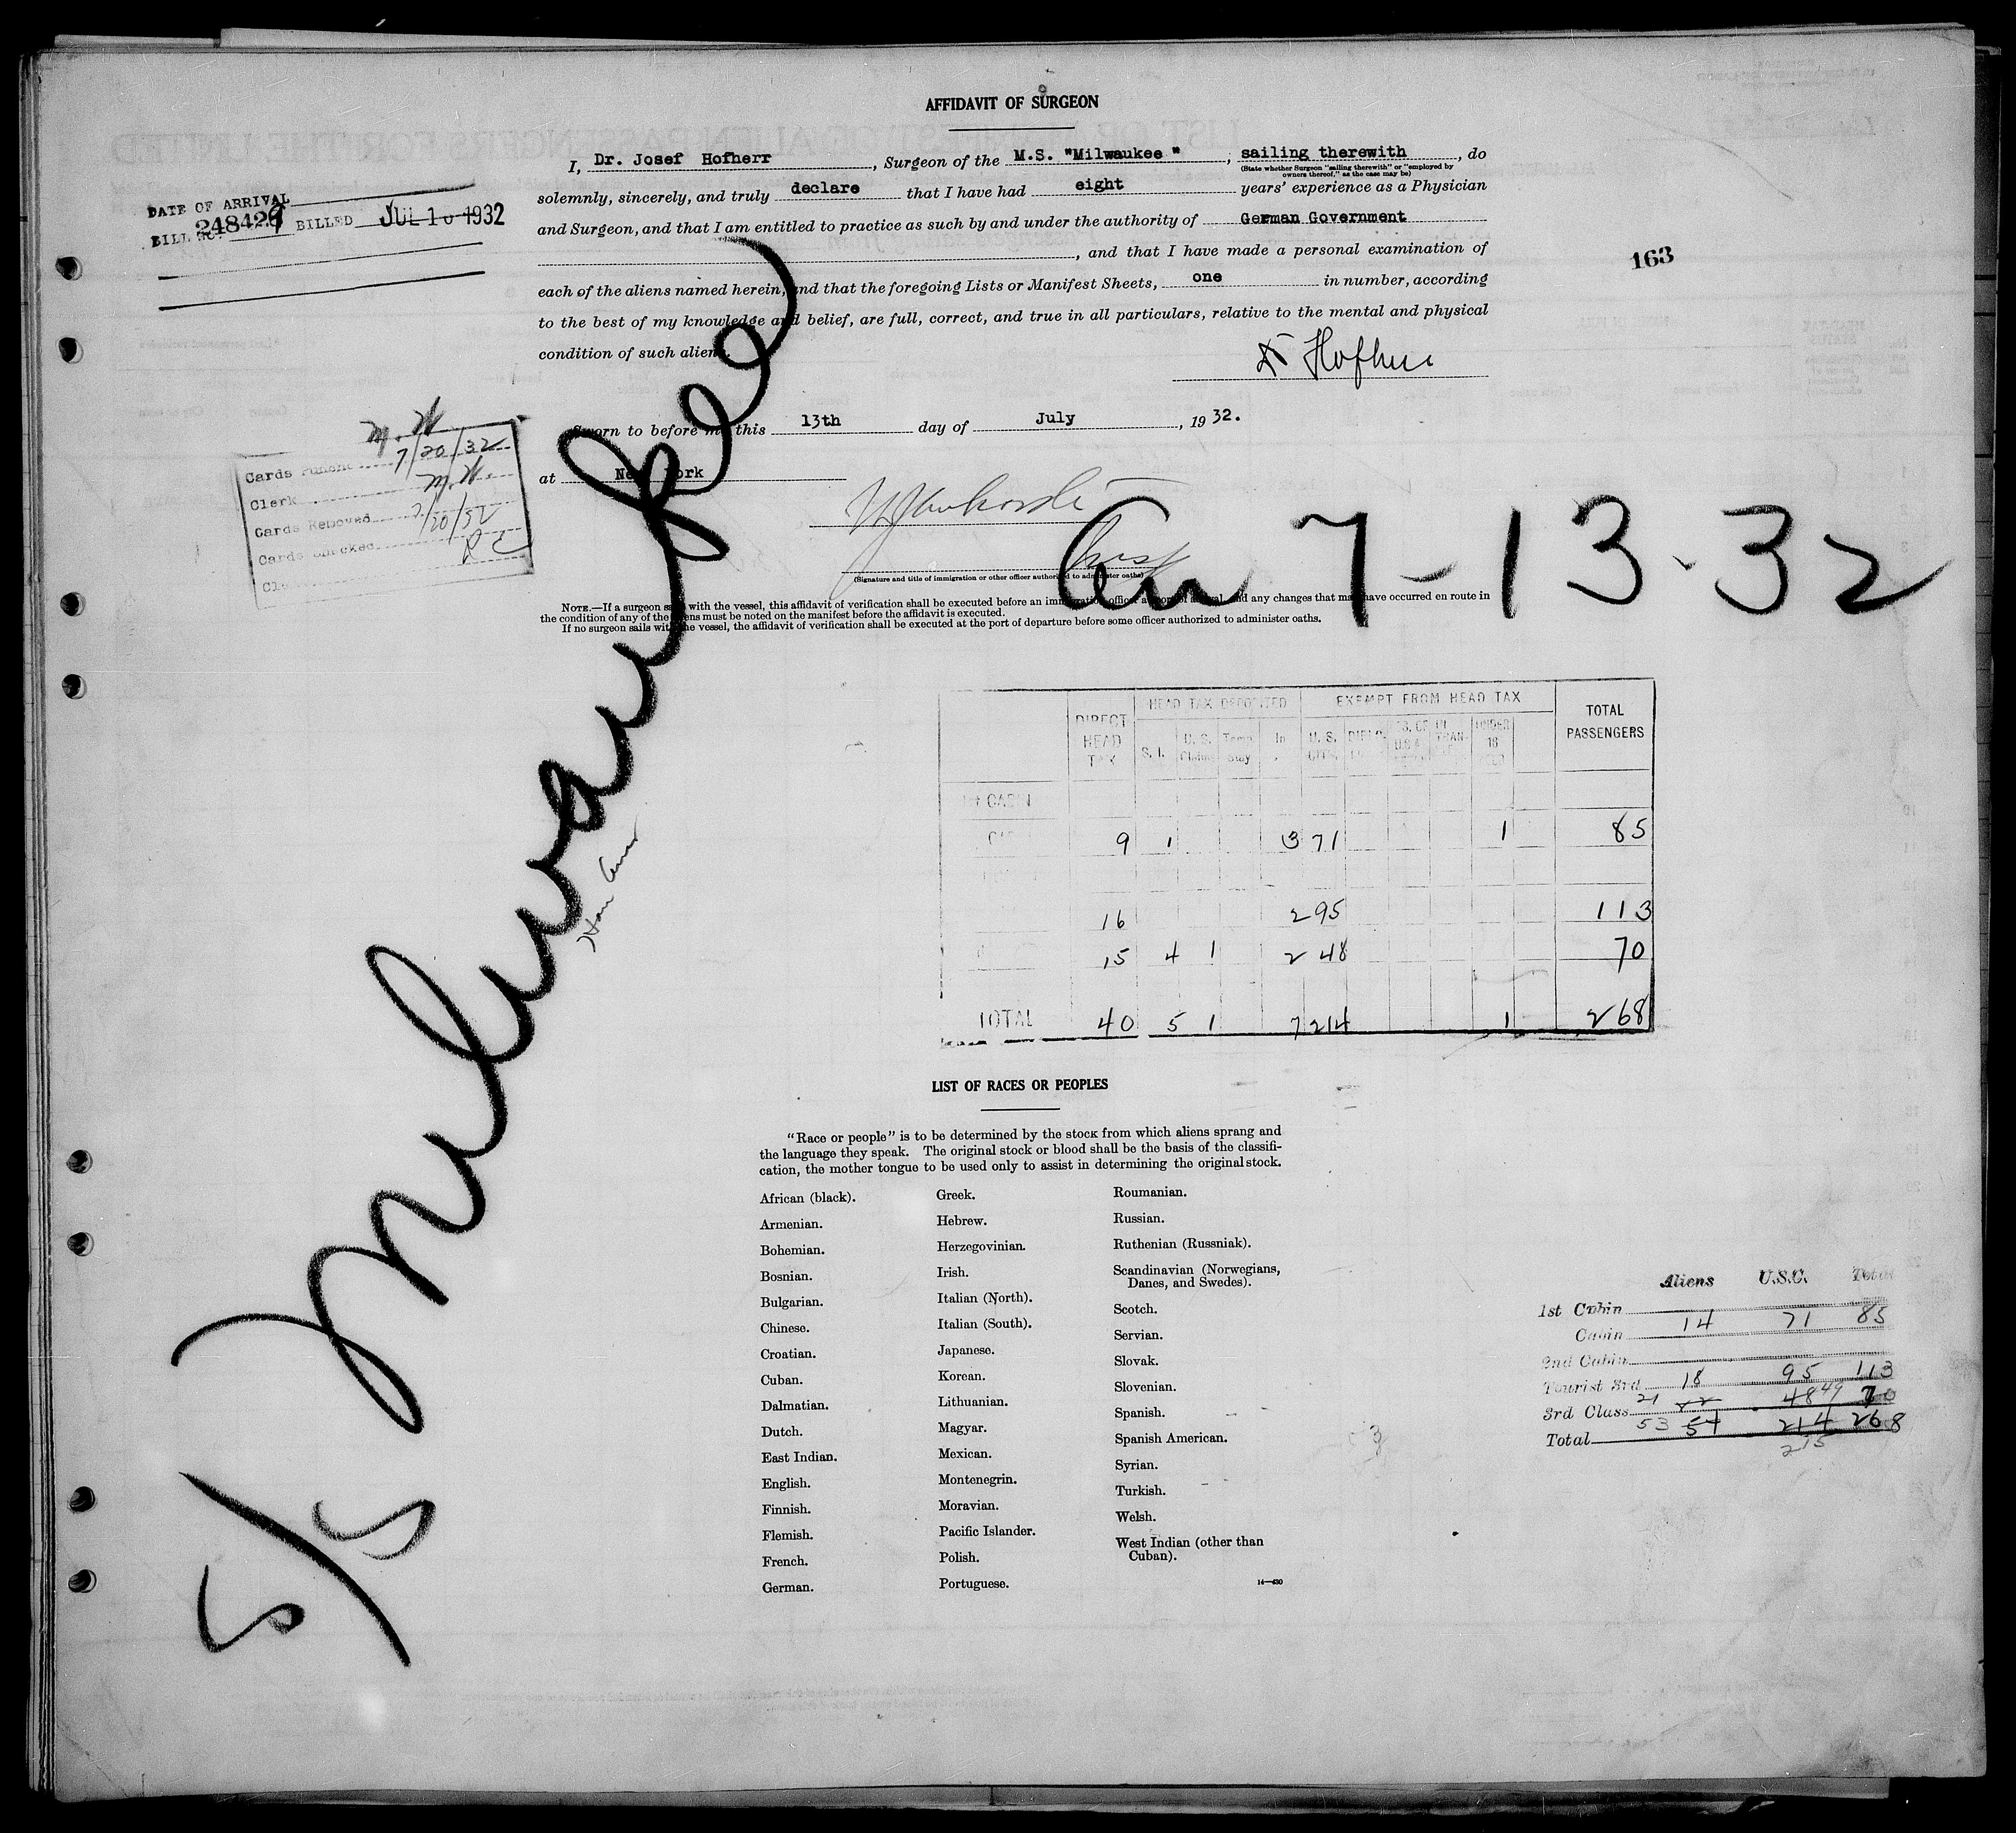 AFFIDAVIT OF SURGEON
I, Dr. Josef Hofherr, Surgeon of the M.S. "Milwaukee", sailing therewith, do
(State whether Surgeon "sailing therewith" or "employed by
owners thereof," as the case may be)
solemnly, sincerely, and truly declare that I have had eight years' experience as a Physician
and Surgeon, and that I am entitled to practice as such by and under the authority of German Government
, and that I have made a personal examination of
each of the aliens named herein, and that the foregoing Lists or Manifest Sheets, one in number, according
to the best of my knowledge and belief, are full, correct, and true in all particulars, relative to the mental and physical
condition of such aliens.
Dr Hofherr
Sworn to before me this 13th day of July, 1932.
at New York
Insp
(Signature and title of immigration or other officer authorized to administer oaths)
NOTE.—If a surgeon sails with the vessel, this affidavit of verification shall be executed before an immigration officer at port of arrival, and any changes that may have occurred en route in
the condition of any of the aliens must be noted on the manifest before the affidavit is executed.
If no surgeon sails with the vessel, the affidavit of verification shall be executed at the port of departure before some officer authorized to administer oaths.
DATE OF ARRIVAL
BILL NO. 248429 BILLED JUL 16 1932
163
M. W.
Cards Punched 7/20/32
Clerk M. W.
Cards Removed 7/20/32
Cards Checked
S/S Milwaukee
Ham Amer
Arr 7-13-32
DIRECT HEAD TAX
HEAD TAX DEPOSITED
EXEMPT FROM HEAD TAX
TOTAL PASSENGERS
S. I. U. S. Temp Stay In U. S. CITZ. UNDER 16
1st CABIN
9 1 3 71 1 85
16 2 95 113
15 4 1 2 48 70
TOTAL 40 5 1 7 214 1 268
LIST OF RACES OR PEOPLES
"Race or people" is to be determined by the stock from which aliens sprang and
the language they speak. The original stock or blood shall be the basis of the classifi-
cation, the mother tongue to be used only to assist in determining the original stock.
African (black).
Armenian.
Bohemian.
Bosnian.
Bulgarian.
Chinese.
Croatian.
Cuban.
Dalmatian.
Dutch.
East Indian.
English.
Finnish.
Flemish.
French.
German.
Greek.
Hebrew.
Herzegovinian.
Irish.
Italian (North).
Italian (South).
Japanese.
Korean.
Lithuanian.
Magyar.
Mexican.
Montenegrin.
Moravian.
Pacific Islander.
Polish.
Portuguese.
Roumanian.
Russian.
Ruthenian (Russniak).
Scandinavian (Norwegians,
Danes, and Swedes).
Scotch.
Servian.
Slovak.
Slovenian.
Spanish.
Spanish American.
Syrian.
Turkish.
Welsh.
West Indian (other than
Cuban).
14—430
Aliens U.S.C. Total
1st Cabin
Cabin 14 71 85
2nd Cabin
Tourist 3rd 18 95 113
3rd Class 21 22 48 49 70
Total 53 54 214 268
215